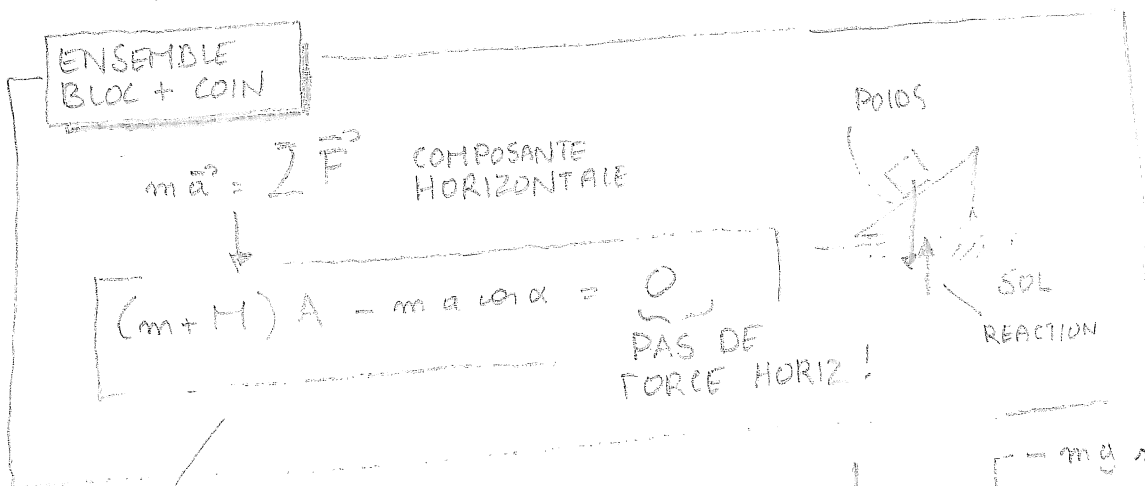 ENSEMBLE
BLOC + COIN
m a⃗ = Σ F⃗ COMPOSANTE
HORIZONTALE
(m+M) A - m a cos α = 0
PAS DE
FORCE HORIZ !
POIDS
SOL
REACTION
- mg